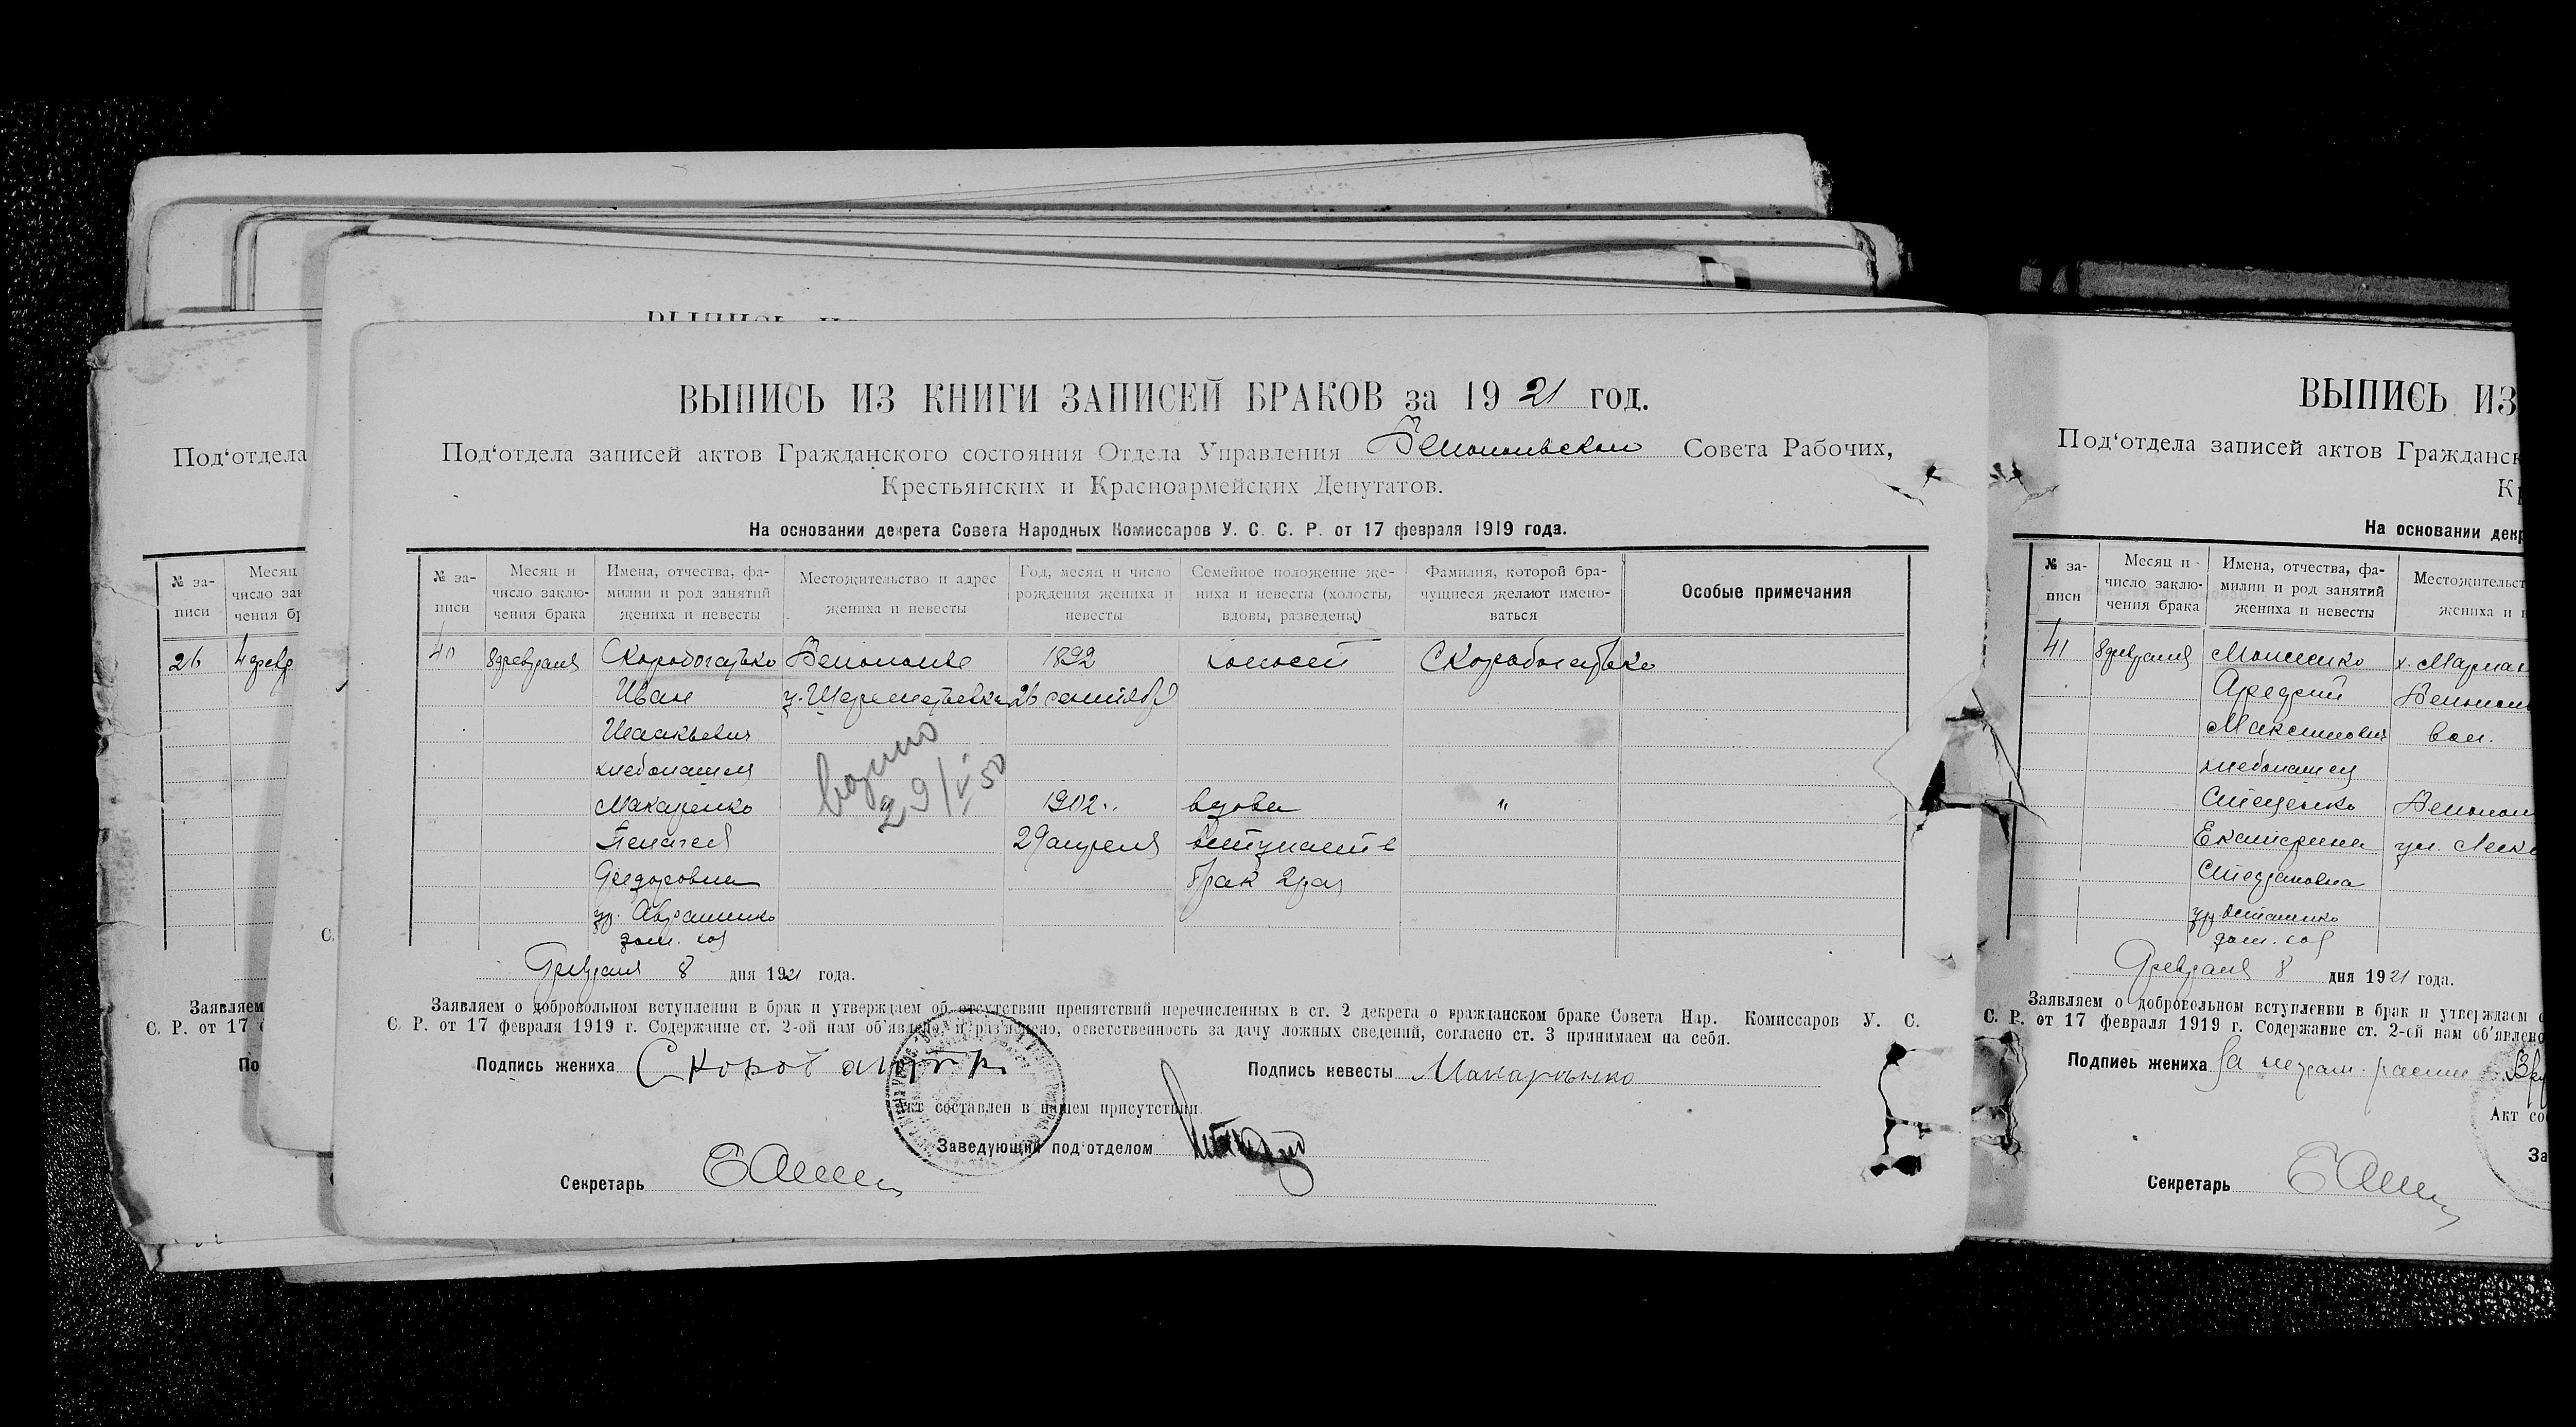 ВЫПИСЬ ИЗ КНИГИ ЗАПИСЕЙ БРАКОВ за 1921 год.
Под‘отдела записей актов Гражданского состояния Отдела Управления Совета Рабочих,
Крестьянских и Красноармейских Депутатов.
На основании декрета Совета Народных Комиссаров У. С. С. Р. от 17 февраля 1919 года.
№ за-
писи
Месяц и
число заклю-
чения брака
Имена, отчества, фа-
милии и род занятий
жениха и невесты
Местожительство и адрес
жениха и невесты
Год, месяц и число
рождения жениха и
невесты
Семейное положение же-
ниха и невесты (холосты,
вдовы, разведены)
Фамилия, которой бра-
чущиеся желают имено-
ваться
Особые примечания
40 8 февраля Скоробогатько 1892 холостой Скоробогатько
Иван 26
Исаакьевич
хлебопашец
Макаренко 1902 вдова "
Пелагея 29 апреля вступает в
Федоровна брак 2 раз
ур. Авраменко
дом. хоз
29/V 50
Февраля 8 дня 1921 года.
Заявляем о добровольном вступлении в брак и утверждаем об отсутствии препятствий перечисленных в ст. 2 декрета о гражданском браке Совета Нар. Комиссаров У. С.
С. Р. от 17 февраля 1919 г. Содержание ст. 2-ой нам об‘явлено и раз‘яснено, ответственность за дачу ложных сведений, согласно ст. 3 принимаем на себя.
Подпись жениха
Подпись невесты Макаренко
Акт составлен в нашем присутствии.
Заведующий под‘отделом
Секретарь
Под‘отдела
№ за-
писи
Месяц
число зак
чения бр
26 4 февр
С.
Заявляем
С. Р. от 17
По
ВЫПИСЬ ИЗ
Под‘отдела записей актов Гражданск
Кр
На основании декр
№ за-
писи
Месяц и
число заклю-
чения брака
Имена, отчества, фа-
милии и род занятий
жениха и невесты
Местожительст
жениха и н
41 8 февраля
Максимович вол.
хлебопашец
Екатерина ул.
Степановна
дом. хоз
Февраля 8 дня 1921 года.
Заявляем о добровольном вступлении в брак и утверждаем
С. Р. от 17 февраля 1919 г. Содержание ст. 2-ой нам об‘явлено
Подпись жениха За
Акт со
За
Секретарь